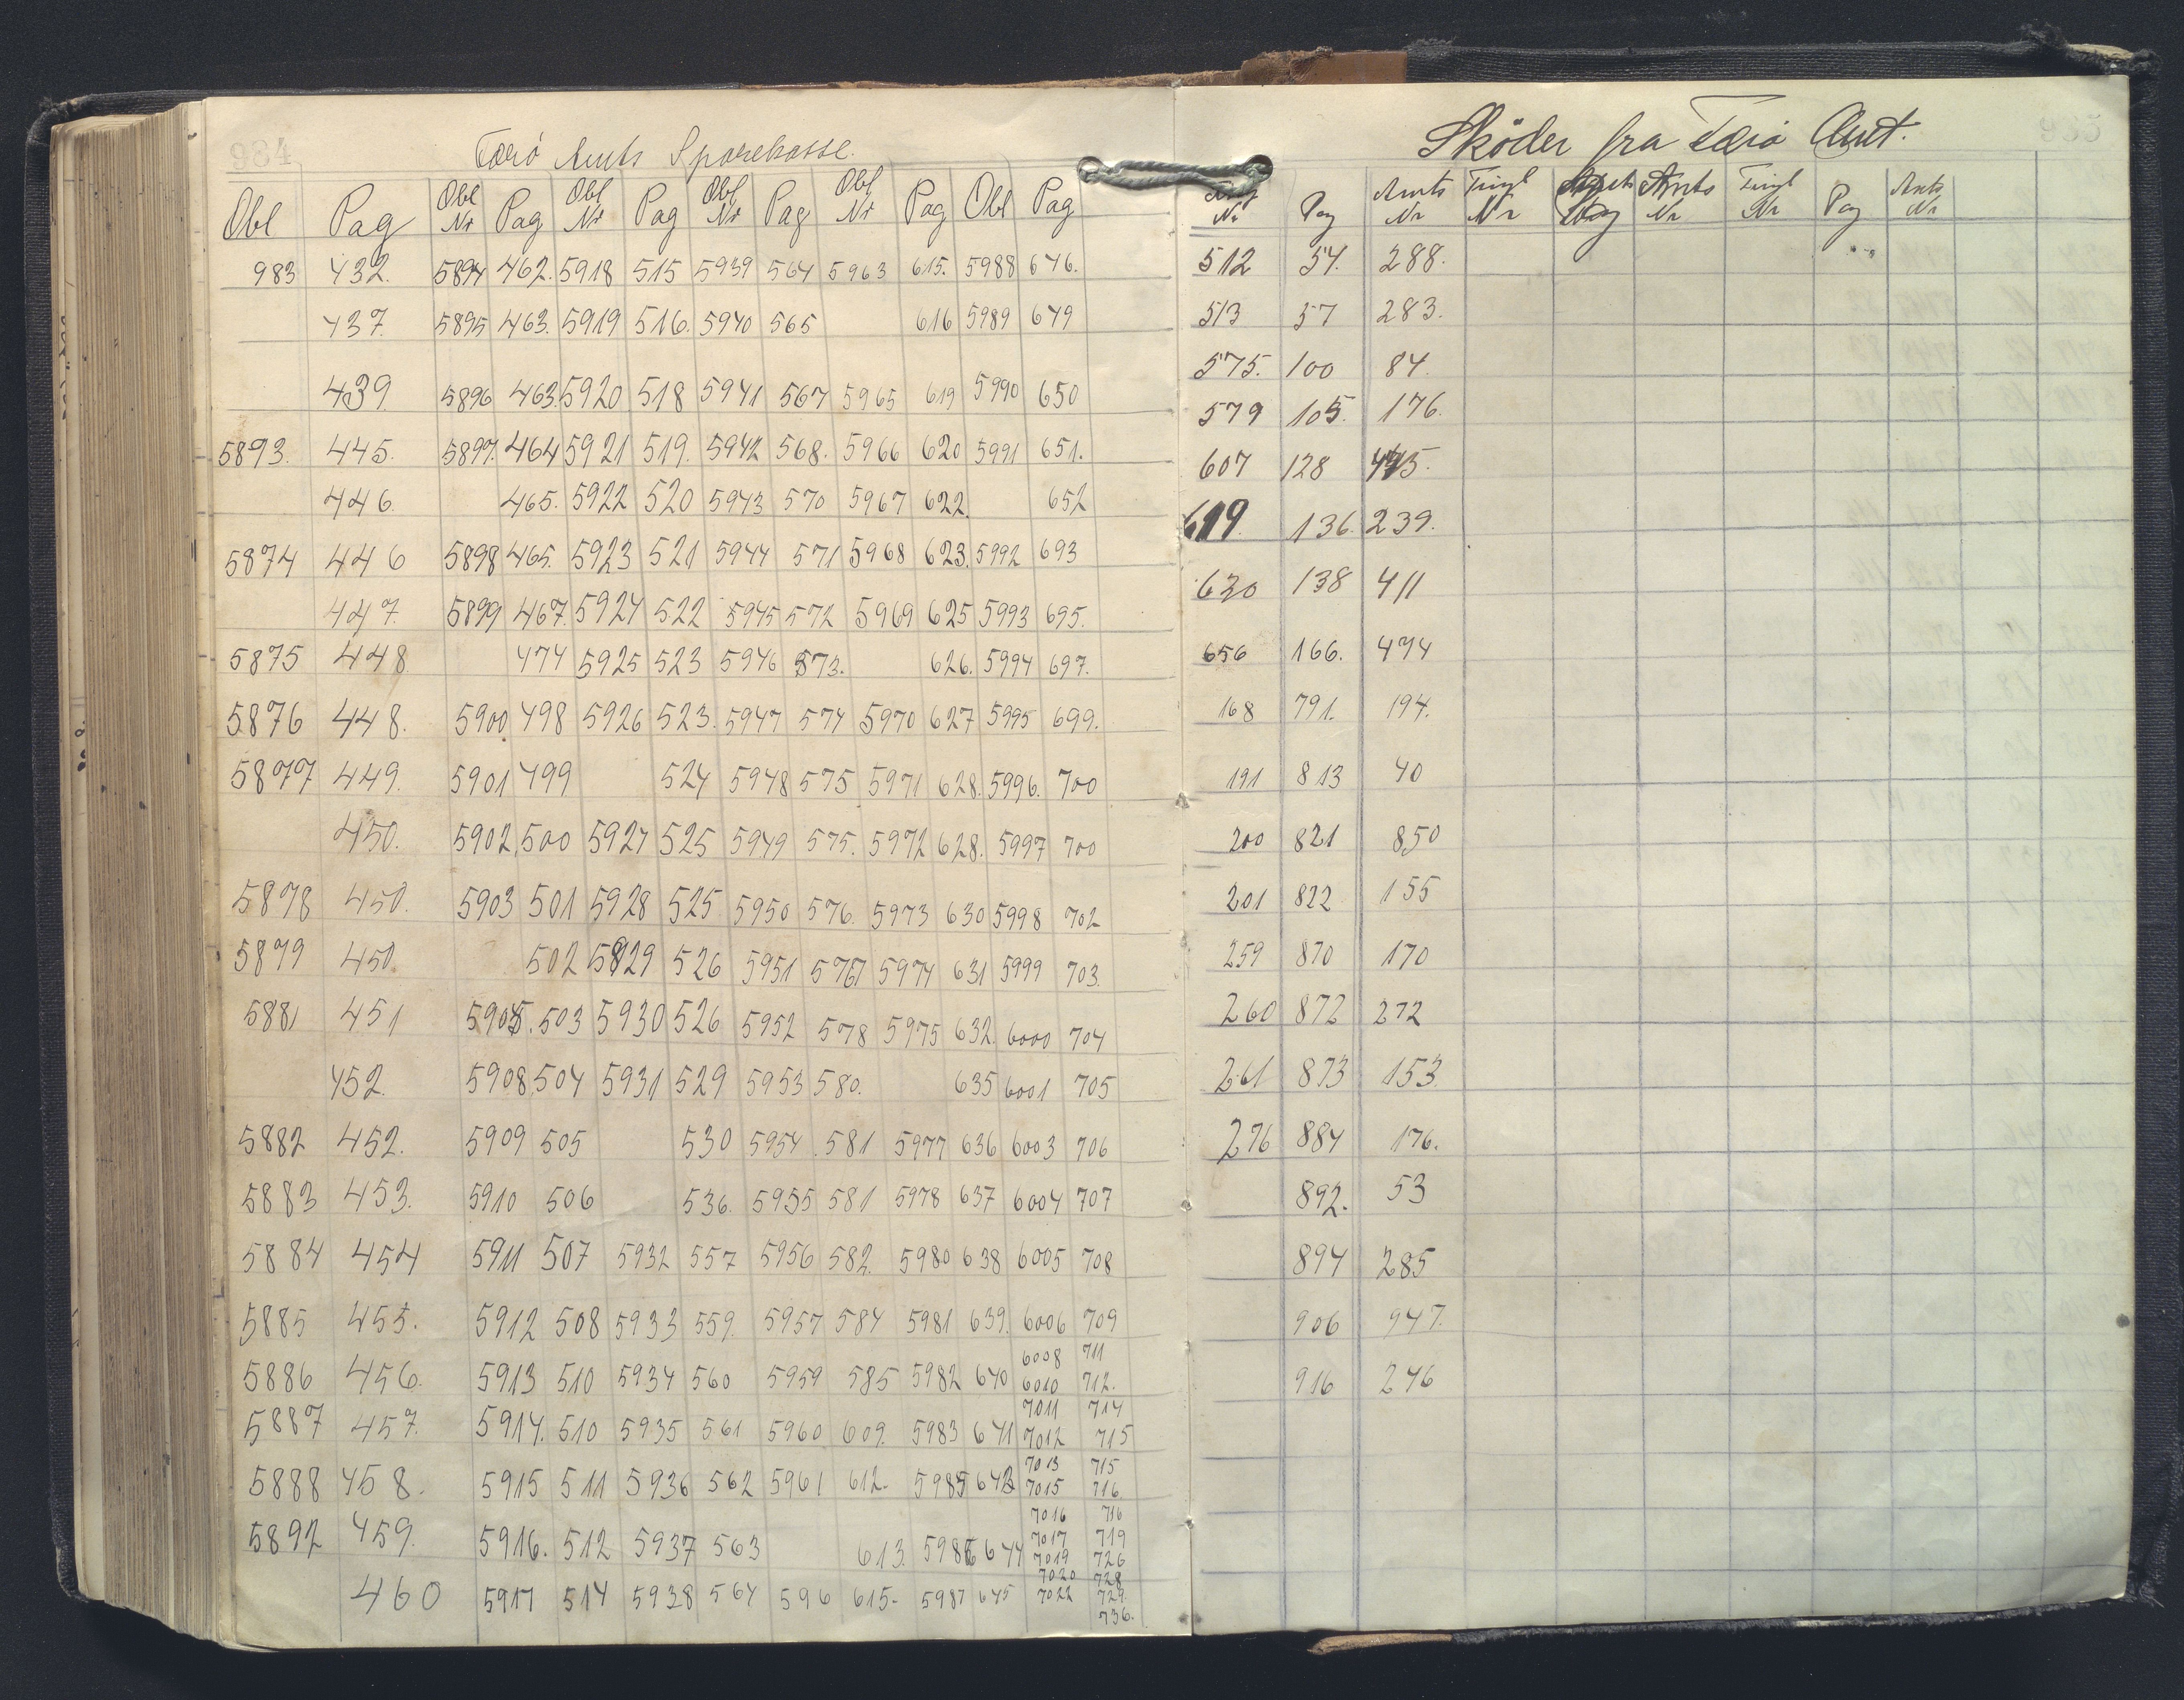 984
Færö Amts Sparekasse.
Obl Pag Obl Nr Pag Obl Nr Pag Obl Nr Pag Obl Nr Pag Obl Pag
983 432. 5894 462. 5918 515 5939 564 5963 615. 5988 646.
437. 5895 463. 5919 516. 5940 565 616 5989 649
439. 5896 463. 5920 518 5941 567 5965 619 5990 650
5893. 445. 5897. 464 5921 519. 5942 568. 5966 620 5991 651.
446. 465. 5922 520 5943 570 5967 622. 652
5874 446 5898 465. 5923 521 5944 571 5968 623. 5992 693
447. 5899 467. 5924 522 5945 572 5969 625 5993 695.
5875 448. 474 5925 523 5946 573. 626. 5994 697.
5876 448. 5900 498 5926 523. 5947 574 5970 627 5995 699.
5877 449. 5901 499 524 5948 575 5971 628. 5996. 700
450. 5902 500 5927 525 5949 575. 5972 628. 5997 700
5878 450. 5903 501 5928 525 5950 576. 5973 630 5998 702
5879 450. 502 5829 526 5951 577 5974 631 5999 703.
5881 451 5905. 503 5930 526 5952 578 5975 632. 6000 704
452. 5908 504 5931 529 5953 580. 635 6001 705
5882 452. 5909 505 530 5954 581 5977 636 6003 706
5883 453. 5910 506 536. 5955 581 5978 637 6004 707
5884 454 5911 507 5932 557 5956 582. 5980 638 6005 708
5885 455. 5912 508 5933 559. 5957 584 5981 639. 6006 709
6008 711
5886 456. 5913 510 5934 560 5959 585 5982 640 6010 712.
7011 714
5887 457. 5914. 510 5935 561 5960 609. 5983 641 7012 715
7013 715
5888 458. 5915 511 5936 562 5961 612. 5985 643 7015 716.
7016 716
5892 459. 5916. 512 5937 563 613. 5986 644 7017 719
7019 726
7020 728
460 5917 514 5938 564 596 615. 5987 645 7022 729.
736.
Sköder fra Færö Amt.
Nr Pag Amts Nr Tingl Nr Pag Amts Nr Tingl Nr Pag Amts Nr
512 54. 288.
513 57 283.
575. 100 84.
579 105. 176.
607 128 445.
619. 136. 239.
620 138 411
656 166. 494
168 791. 194.
191 813 40
200 821 850
201 822 155
259 870 170
260 872 272
261 873 153.
276 884 176.
892. 53
894 285
906 947.
916 246